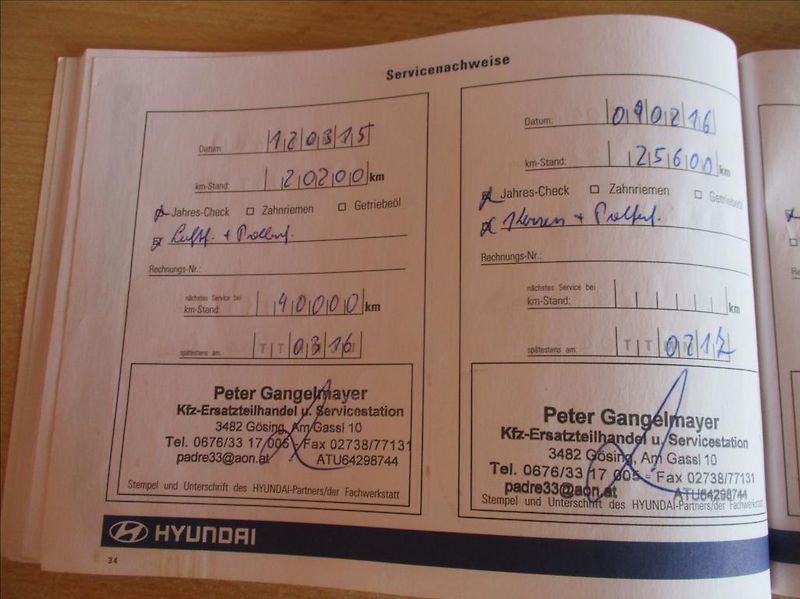 Servicenachweise
Datum: 120315
km-Stand: 20200 km
Jahres-Check Zahnriemen Getriebeöl
Luftf. + Pollenf.
Rechnungs-Nr.:
nächstes Service bei
km-Stand: 40000 km
spätestens am: TT 0316
Peter Gangelmayer
Kfz-Ersatzteilhandel u. Servicestation
3482 Gösing, Am Gassl 10
Tel. 0676/33 17 005 - Fax 02738/77131
padre33@aon.at ATU64298744
Stempel und Unterschrift des HYUNDAI-Partners/der Fachwerkstatt
Datum: 090216
km-Stand: 25600 km
Jahres-Check Zahnriemen Getriebeöl
+ Pollenf.
Rechnungs-Nr.:
nächstes Service bei
km-Stand: km
spätestens am: TT 0217
Peter Gangelmayer
Kfz-Ersatzteilhandel u. Servicestation
3482 Gösing, Am Gassl 10
Tel. 0676/33 17 005 - Fax 02738/77131
padre33@aon.at ATU64298744
Stempel und Unterschrift des HYUNDAI-Partners/der Fachwerkstatt
HYUNDAI
34